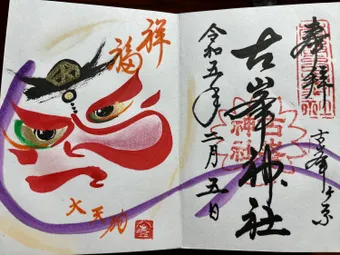 奉拝
古峯ヶ原
古峯神社
古峯
神社
令和五年二月五日
祥
福
大天狗